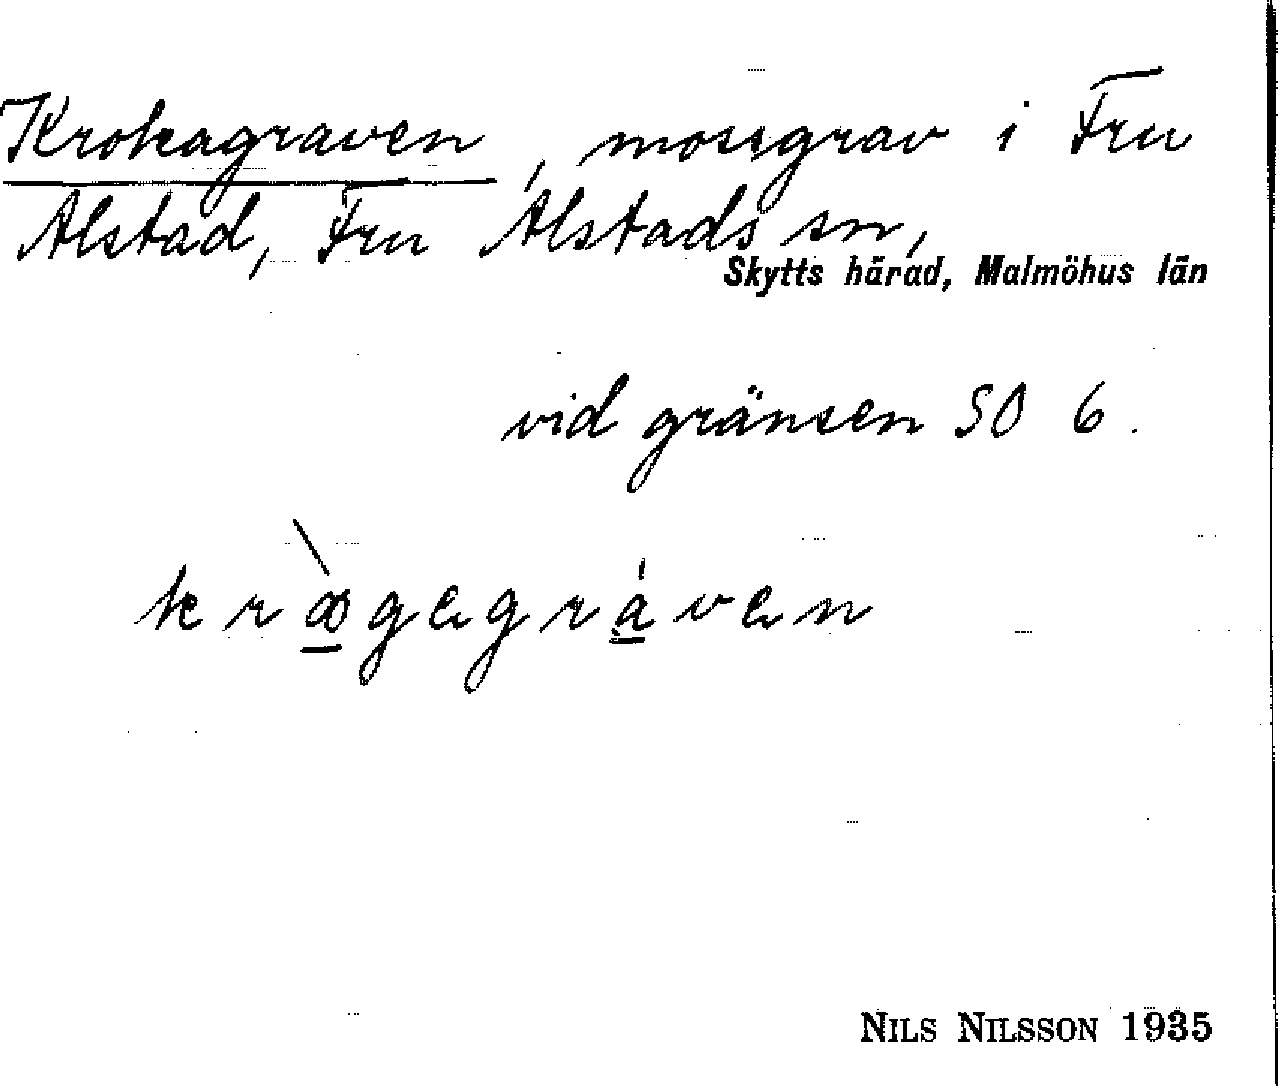 Krokagraven, mossgrav i Fru
Alstad, Fru Alstads sn,
Skytts härad, Malmöhus län
vid gränsen SO 6.
NILS NILSSON 1935